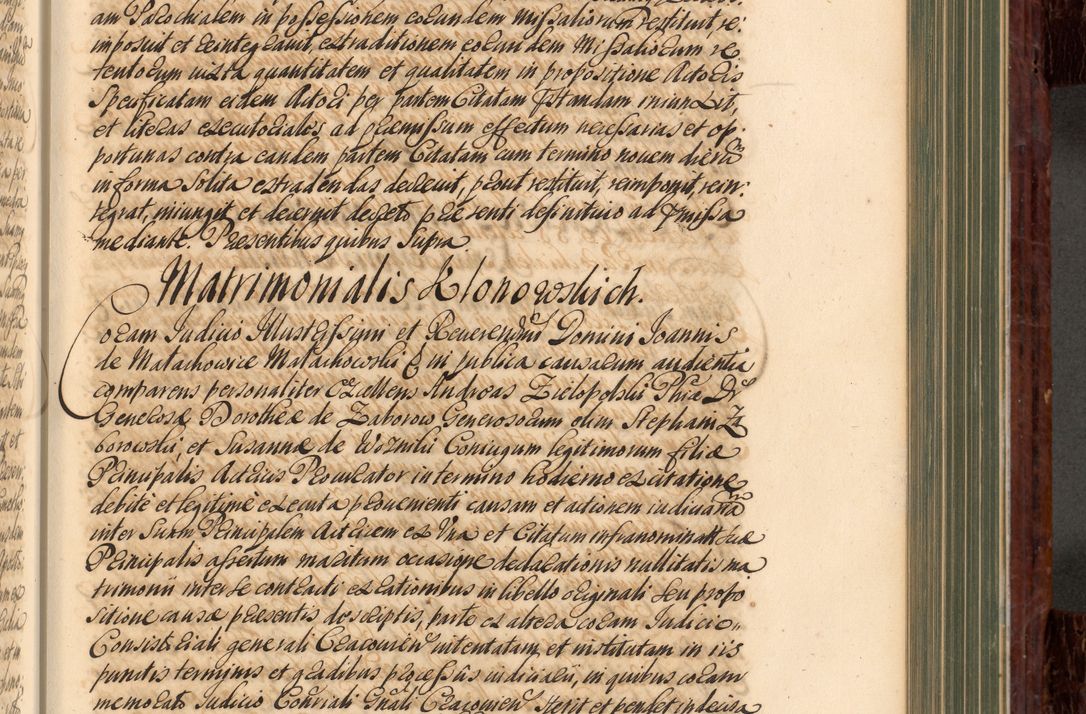 am Parochialem in possessionem earundem Missaliorum restituit, re-
imposuit et reintegravit, extraditionem earundem Missaliorum re
tentorum iuxta quantitatem et qualitatem in propositione Actoris
specificatam eidem Actori per partem Citatam praestandam iniunxit,
et literas executoriales ad praemissum effectum necessarias et op-
portunas contra eandem partem Citatam cum termino novem dierum
in forma solita extradendas decrevit, prout restituit, reimponit, rein-
tegrat, iniungit et decernit decreto praesenti definitivo ad praemissa
mediante. Praesentibus quibus supra
Matrimonialis Klonowskich.
Coram Iudicio Illustrissimi et Reverendissimi Domini Ioannis
de Małachowice Małachowski E in publica causarum audientia
comparens personaliter Excellens Andreas Zielopolski Phiae Dr
Generosae Dorotheae de Zaborow Generosorum olim Stephani Za
borowski, et Susannae de Woźniki Coniugum legitimorum filiae
Principalis Actricis Procurator in termino hodierno ex citatione
debitè et legitimè executa provenienti causam et actionem iudiciariam
inter suam Principalem Actricem ex Una et Citatum infranominatum suae
Principalis assertum maritum occasione declarationis nullitatis ma
trimonii inter se contracti ex rationibus in libello originali seu propo
sitione causae praesentis descriptis, parte ex altera coram Iudicio
Consistoriali generali Cracoviensi intentatam et institutam in cis
punctis terminis et gradibus processus iudiciarii, in quibus coram
memorato Iudicio Consriali Gnali Cracoviensi stetit et pendet indecisa